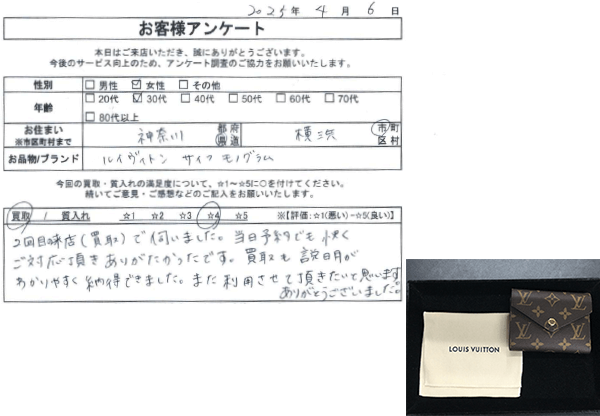 2025年 4月 6日
お客様アンケート
本日はご来店いただき、誠にありがとうございます。
今後のサービス向上のため、アンケート調査のご協力をお願いいたします。
性別 □ 男性 ☑ 女性 □ その他
年齢 □ 20代 ☑ 30代 □ 40代 □ 50代 □ 60代 □ 70代
□ 80代以上
お住まい ※市区町村まで 神奈川 都 府 県 道 横浜 市/町 区 村
お品物/ブランド ルイヴィトン サイフ モノグラム
今回の買取・質入れの満足度について、☆1～☆5に○を付けてください。
続いてご意見・ご感想などのご記入をお願いいたします。
買取 / 質入れ ☆1 ☆2 ☆3 ☆4 ☆5 ※【評価:☆1(悪い)-☆5(良い)】
2回目来店(買取)で伺いました。当日予約でも快く
ご対応頂きありがたかったです。買取も説明が
わかりやすく納得できました。また利用させて頂きたいと思います
ありがとうございました。
LOUIS VUITTON